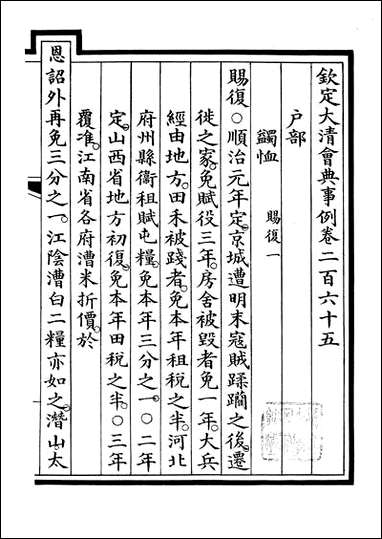 欽定大清會典事例卷二百六十五
戶部
蠲恤 賜復一
賜復○順治元年定。京城遭明末寇賊蹂躪之後。遷
徙之家。免賦役三年。房舍被毀者免一年。大兵
經由地方。田禾被踐者。免本年租稅之半。河北
府州縣衞租賦屯糧。免本年三分之一。○二年
定。山西省地方初復。免本年田稅之半。○三年
覆准。江南省各府漕米折價。於
恩詔外再免三分之一。江陰漕白二糧亦如之。潛山太